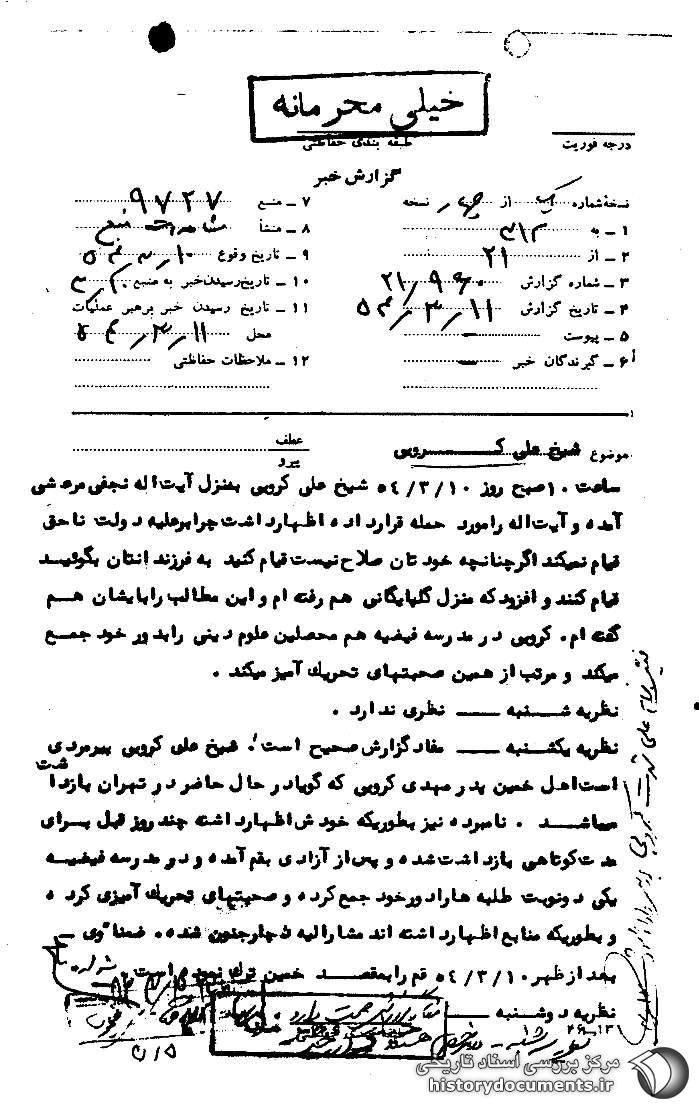 خیلی محرمانه
طبقه بندی حفاظتی
درجه فوریت
گزارش خبر
نسخهٔ شماره یک از چهار نسخه
۱ – به ۳۱۲
۲ – از ۲۱
۳ – شماره گزارش
۴ – تاریخ گزارش ۵۴٫۳٫۱۱
۵ – پیوست —
۶ – گیرندگان خبر —
۷ – منبع ۹۷۲۷
۸ – منشأ
۹ – تاریخ وقوع ۵۴٫۳٫۱۰
۱۰ – تاریخ رسیدن خبر به منبع
۱۱ – تاریخ رسیدن خبر برهبر عملیات
محل ۵۴٫۳٫۱۱
۱۲ – ملاحظات حفاظتی
موضوع شیخ علی کــروبی
عطف
پیرو
ساعت ۱۰صبح روز ۵۴/۳/۱۰ شیخ علی کروبی بمنزل آیت اله نجفی مرعشی
آمده و آیت اله را مورد حمله قرار داده اظهار داشت چرا برعلیه دولت ناحق
قیام نمیکند اگر چنانچه خودتان صلاح نیست قیام کنید به فرزندانتان بگوئید
قیام کنند و افزود که منزل گلپایگانی هم رفته ام و این مطالب را بایشان هم
گفته ام. کروبی در مدرسه فیضیه هم محصلین علوم دینی را بدور خود جمع
میکند و مرتب از همین صحبتهای تحریك آمیز میکند .
نظریه شــنبه ـــ نظری ندارد .
نظریه یکشنبه ـــ مفاد گزارش صحیح است. شیخ علی کروبی پیرمردی
است اهل خمین پدر مهدی کروبی که گویا در حال حاضر در تهران بازداشت
میباشــد . نامبرده نیز بطوریکه خودش اظهار داشته چند روز قبل بــرای
مدت کوتاهی بازداشت شده و پس از آزادی بقم آمده و در مدرسه فیضیــه
یکی دو نوبت طلبه ها را دور خود جمع کرده و صحبتهای تحریك آمیزی کرده
و بطوریکه منابع اظهار داشته اند مشارالیه دچار جنون شده. ضمنا وی –
بعد از ظهر ۵۴/۳/۱۰ قم را بمقصــد خمین ترك نموده است
نظریه دوشنبه ـــ
مرکز بررسی اسناد تاریخی
historydocuments.ir